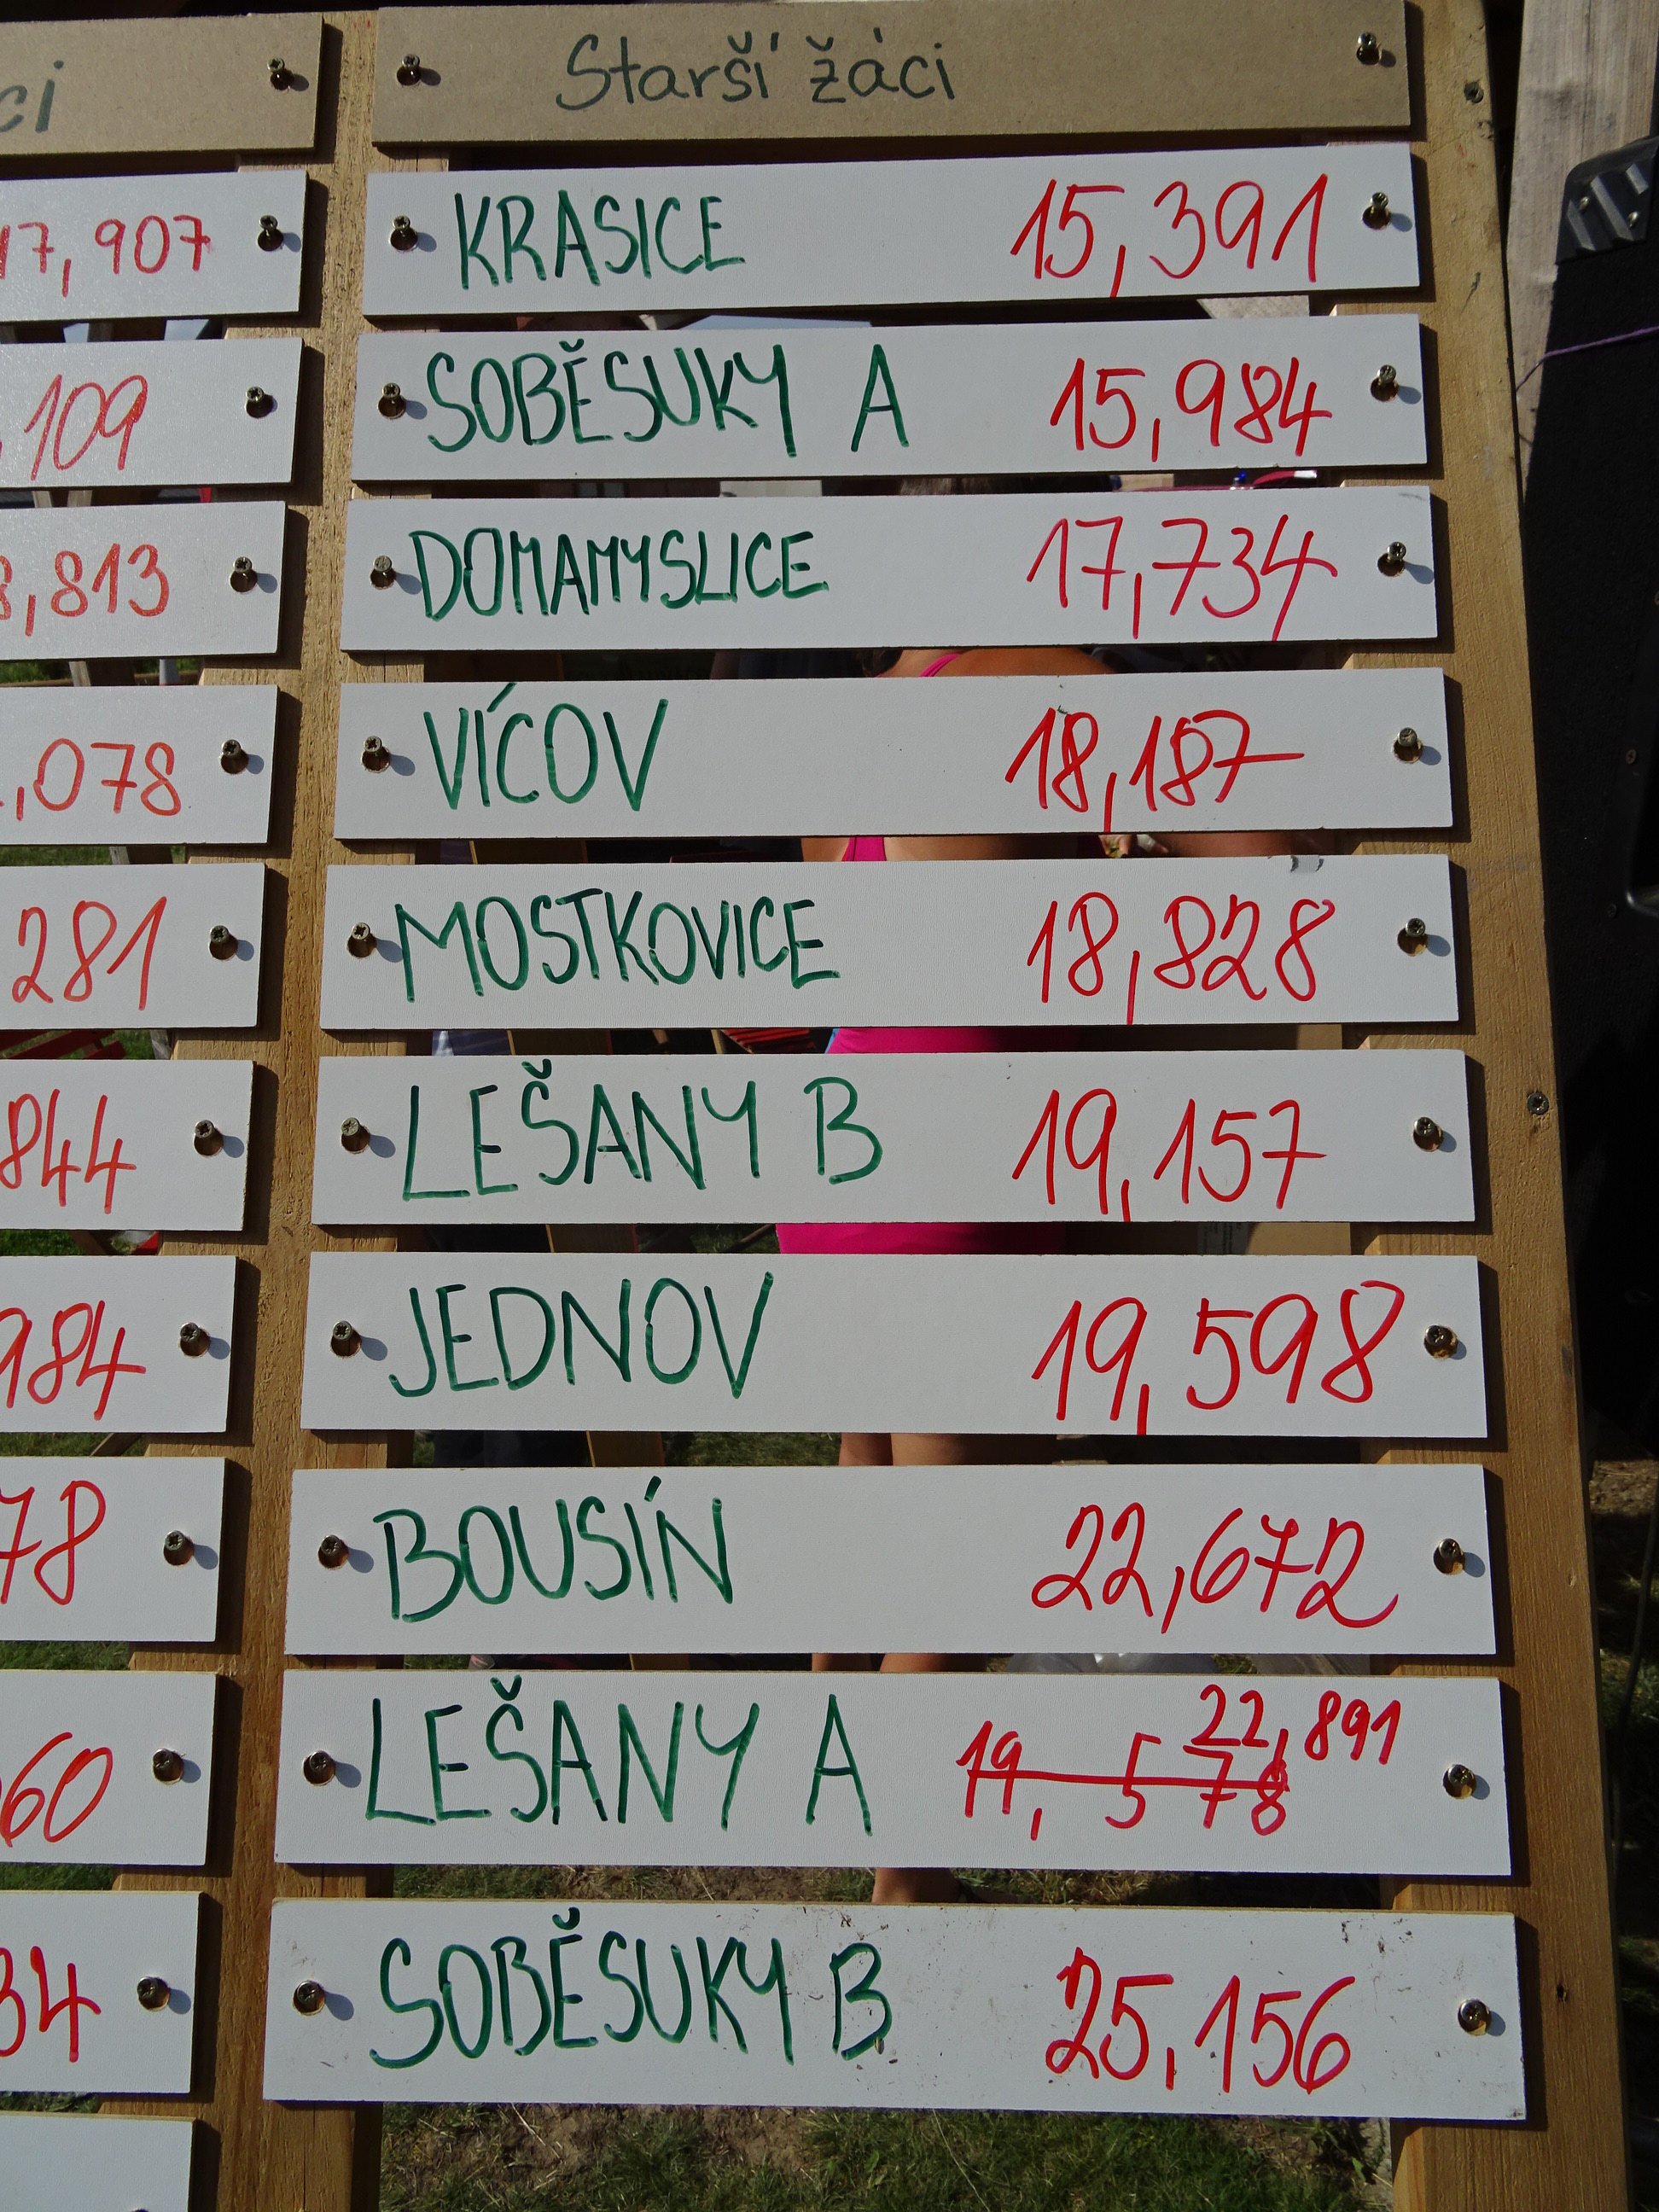 ci
Starší žáci
17,907
KRASICE 15,391
,109
SOBĚSUKY A 15,984
8,813
DOMAMYSLICE 17,734
,078
VÍCOV 18,187
281
MOSTKOVICE 18,828
844
LEŠANY B 19,157
984
JEDNOV 19,598
78
BOUSÍN 22,672
60
LEŠANY A 19,578 22,891
34
SOBĚSUKY B 25,156